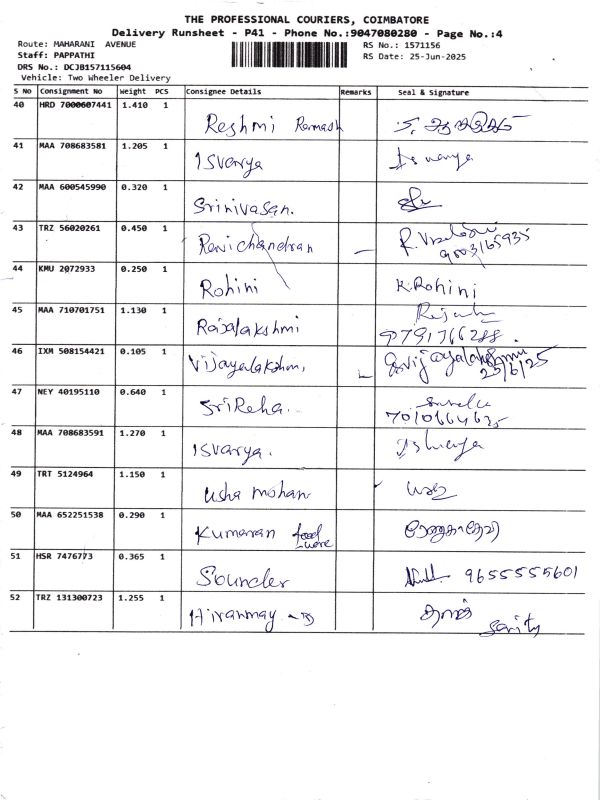 THE PROFESSIONAL COURIERS, COIMBATORE
Delivery Runsheet - P41 - Phone No.:9047080280 - Page No.:4
Route: MAHARANI AVENUE
Staff: PAPPATHI
DRS No.: DCJB157115604
Vehicle: Two Wheeler Delivery
RS No.: 1571156
RS Date: 25-Jun-2025
S No Consignment No Weight PCS Consignee Details Remarks Seal & Signature
40 HRD 7000607441 1.410 1 Reshmi Ramash
41 MAA 708683581 1.205 1 Isvarya Iswarya
42 MAA 600545990 0.320 1 Srinivasan.
43 TRZ 56020261 0.450 1 Ravichandran 9003165935
44 KMU 2072933 0.250 1 Rohini K.Rohini
45 MAA 710701751 1.130 1 Rajalakshmi 9791766288.
46 IXM 508154421 0.105 1 Vijayalakshmi 25/6/25
47 NEY 40195110 0.640 1 SriReha.
48 MAA 708683591 1.270 1 Isvarya.
49 TRT 5124964 1.150 1 Usha mohan
50 MAA 652251538 0.290 1 Kumaran ரேணுகாதேவி
51 HSR 7476773 0.365 1 Sounder 9655555601
52 TRZ 131300723 1.255 1 Hiranmay